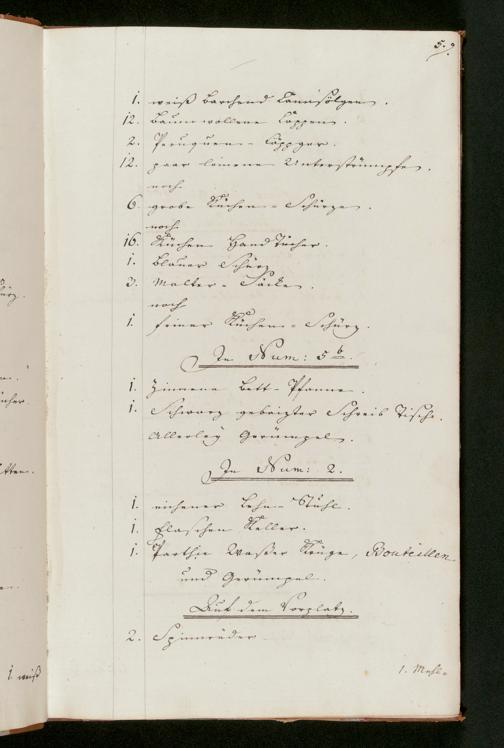 59.
1. weiß barchend Camisölgen.
12. baumwollene Cappen.
2. Peruquen-Cäppger.
12. paar leinene Unterstrümpfe.
noch
6. grobe Küchen-Schürze.
noch
16. Küchen Hand Tücher.
1. blauer Schurz
3. Malter-Säcke.
noch
1. feiner Küchen-Schürz.
In Num: 5 b.
1. Zinnene Bett-Pfanne.
1. Schwarz gebeizter Schreib Tisch.
Allerley Gerümpel.
In Num: 2.
1. eichener Lehn-Stuhl.
1. Flaschen Keller.
1. Parthie Wasser Krüge, Bouteillen
und Gerümpel.
Auf dem Vorplatz.
2. Spinnräder
1. Mehl-
1. weiß